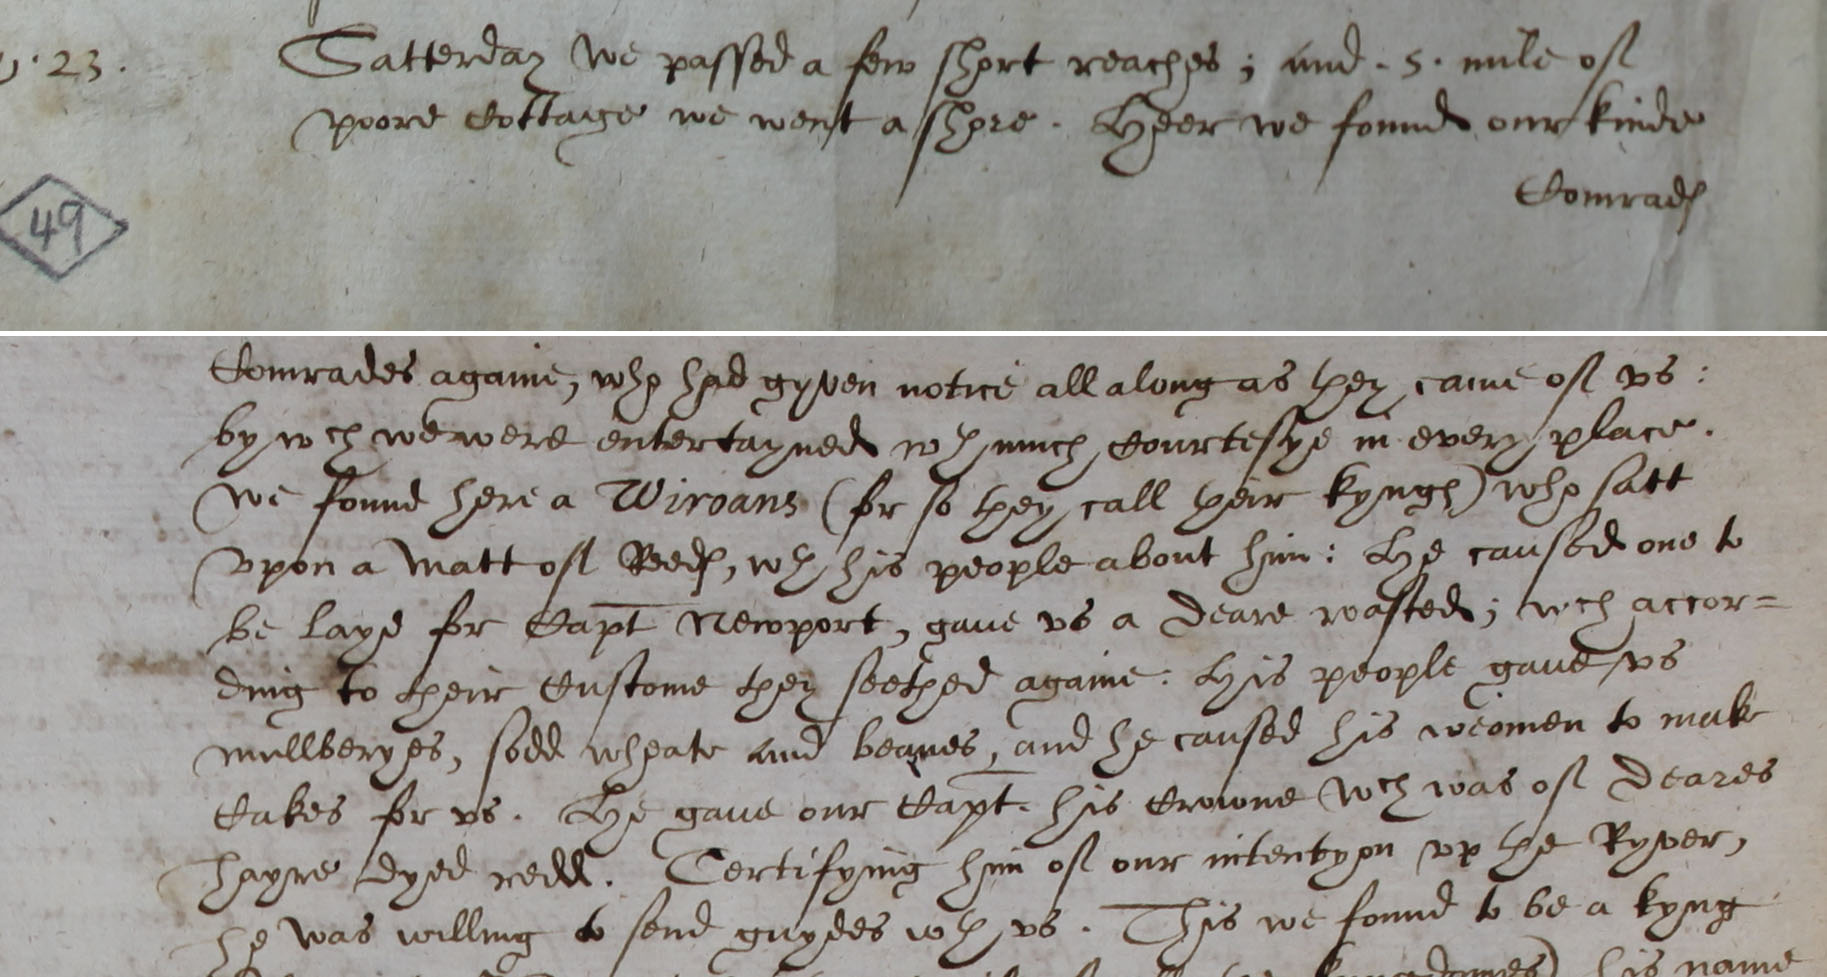 23. Satterday we passed a few short reaches; and .5. mile of
poore Cottage we went a shore. Heer we found our kinde
Comrades
49
Comrades againe, who had gyven notice all along as they came of vs:
by wch we were entertayned wth much Courtesye in every place.
we found here a Wiroans (for so they call their kynges) who satt
vpon a matt of Reedes, wth his people about him: He caused one to
be layd for Capt Newport, gaue vs a Deare roasted; wch accor=
ding to their Custome they seethed againe: His people gaue vs
mullberyes, sodd wheate and beanes, and he caused his weomen to make
Cakes for vs. He gaue our Capt. his Crowne wch was of Deares
hayre dyed redd. Certifying him of our intentyon vp the Ryver,
he was willing to send guydes wth vs. This we found to be a kyng
his name